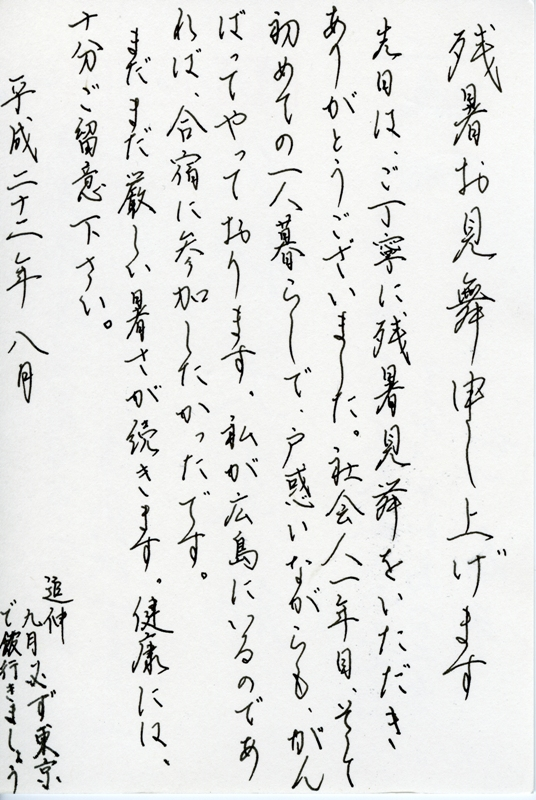 残暑お見舞申し上げます
先日は、ご丁寧に残暑見舞をいただき
ありがとうございました。社会人一年目、そして
初めての一人暮らしで、戸惑いながらも、がん
ばってやっております。私が広島にいるのであ
れば、合宿に参加したかったです。
まだまだ厳しい暑さが続きます。健康には、
十分ご留意下さい。
平成二十二年 八月
追伸
九月必ず東京
で飯行きましょう